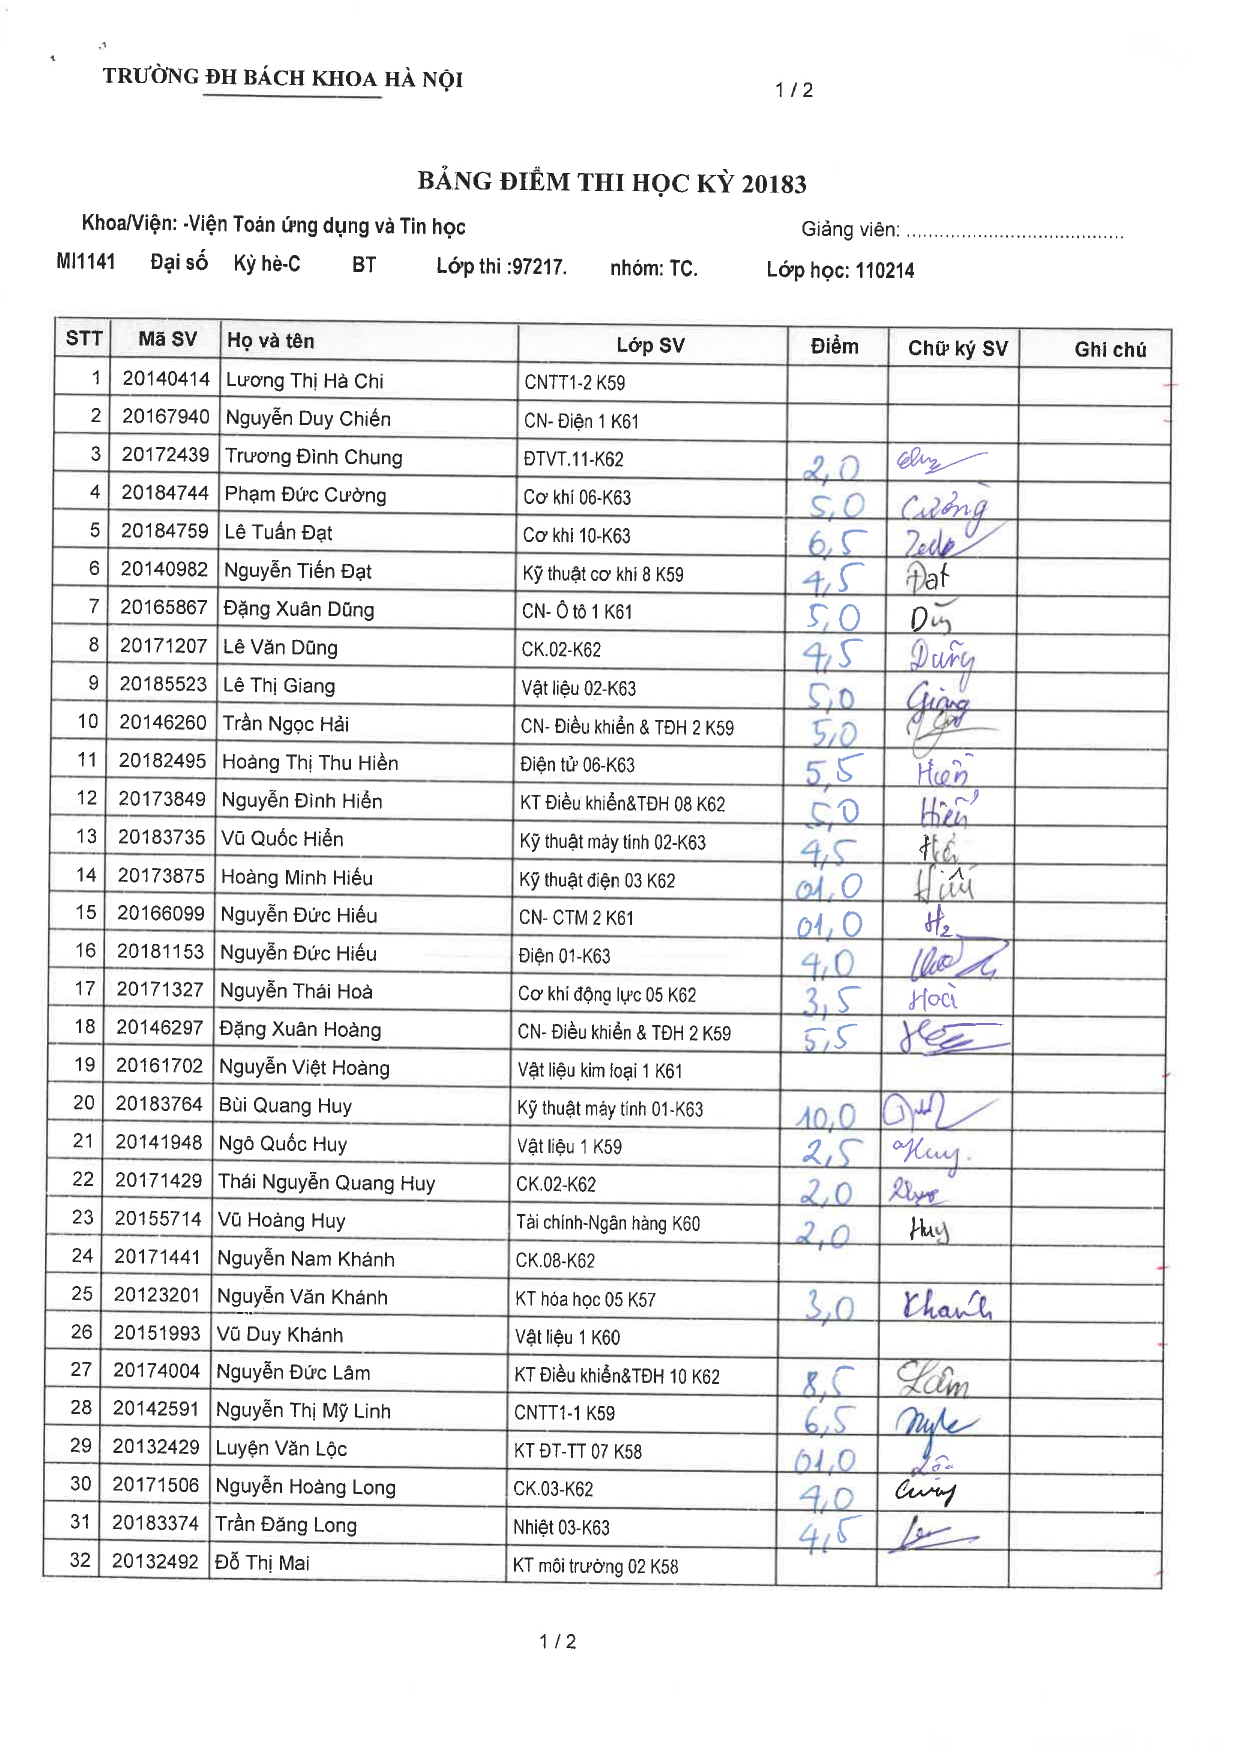 TRƯỜNG ĐH BÁCH KHOA HÀ NỘI
1 / 2
BẢNG ĐIỂM THI HỌC KỲ 20183
Khoa/Viện: -Viện Toán ứng dụng và Tin học Giảng viên: ......................................
MI1141 Đại số Kỳ hè-C BT Lớp thi :97217. nhóm: TC. Lớp học: 110214
STT Mã SV Họ và tên Lớp SV Điểm Chữ ký SV Ghi chú
1 20140414 Lương Thị Hà Chi CNTT1-2 K59
2 20167940 Nguyễn Duy Chiến CN- Điện 1 K61
3 20172439 Trương Đình Chung ĐTVT.11-K62 2,0
4 20184744 Phạm Đức Cường Cơ khí 06-K63 5,0 Cường
5 20184759 Lê Tuấn Đạt Cơ khí 10-K63 6,5
6 20140982 Nguyễn Tiến Đạt Kỹ thuật cơ khí 8 K59 4,5 Đạt
7 20165867 Đặng Xuân Dũng CN- Ô tô 1 K61 5,0
8 20171207 Lê Văn Dũng CK.02-K62 4,5 Dũng
9 20185523 Lê Thị Giang Vật liệu 02-K63 5,0 Giang
10 20146260 Trần Ngọc Hải CN- Điều khiển & TĐH 2 K59 5,0
11 20182495 Hoàng Thị Thu Hiền Điện tử 06-K63 5,5 Hiền
12 20173849 Nguyễn Đình Hiển KT Điều khiển&TĐH 08 K62 5,0 Hiển
13 20183735 Vũ Quốc Hiển Kỹ thuật máy tính 02-K63 4,5
14 20173875 Hoàng Minh Hiếu Kỹ thuật điện 03 K62 01,0
15 20166099 Nguyễn Đức Hiếu CN- CTM 2 K61 01,0
16 20181153 Nguyễn Đức Hiếu Điện 01-K63 4,0
17 20171327 Nguyễn Thái Hoà Cơ khí động lực 05 K62 3,5 Hoà
18 20146297 Đặng Xuân Hoàng CN- Điều khiển & TĐH 2 K59 5,5
19 20161702 Nguyễn Việt Hoàng Vật liệu kim loại 1 K61
20 20183764 Bùi Quang Huy Kỹ thuật máy tính 01-K63 10,0
21 20141948 Ngô Quốc Huy Vật liệu 1 K59 2,5 Huy
22 20171429 Thái Nguyễn Quang Huy CK.02-K62 2,0
23 20155714 Vũ Hoàng Huy Tài chính-Ngân hàng K60 2,0 Huy
24 20171441 Nguyễn Nam Khánh CK.08-K62
25 20123201 Nguyễn Văn Khánh KT hóa học 05 K57 3,0 Khanh
26 20151993 Vũ Duy Khánh Vật liệu 1 K60
27 20174004 Nguyễn Đức Lâm KT Điều khiển&TĐH 10 K62 8,5 Lâm
28 20142591 Nguyễn Thị Mỹ Linh CNTT1-1 K59 6,5
29 20132429 Luyện Văn Lộc KT ĐT-TT 07 K58 01,0
30 20171506 Nguyễn Hoàng Long CK.03-K62 4,0
31 20183374 Trần Đăng Long Nhiệt 03-K63 4,5
32 20132492 Đỗ Thị Mai KT môi trường 02 K58
1 / 2